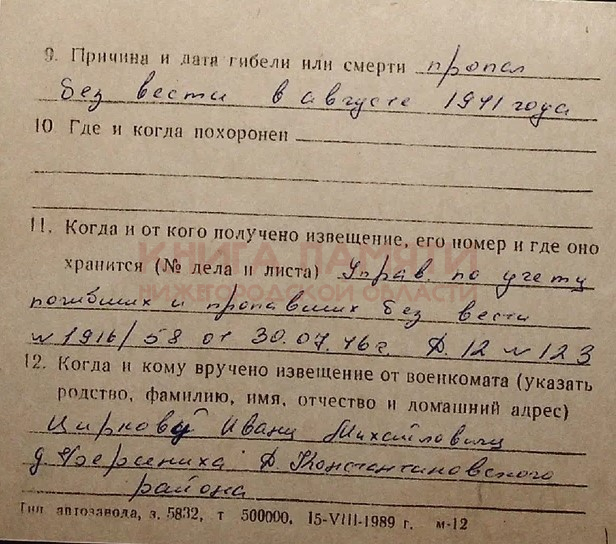 9. Причина и дата гибели или смерти пропал
без вести в августе 1941 года
10 Где и когда похоронен
11. Когда и от кого получено извещение, его номер и где оно
КНИГА ПАМЯТИ
хранится (№ дела и листа) Управ. по учету
НИЖЕГОРОДСКОЙ ОБЛАСТИ
погибших и пропавших без вести
№ 1916/58 от 30.07.46г. Д. 12 № 123
12. Когда и кому вручено извещение от военкомата (указать
родство, фамилию, имя, отчество и домашний адрес)
Циркову Ивану Михайловичу
д. Берсениха Д. Константиновского
района
Тип автозавода, з. 5832, т 500000, 15-VIII-1989 г. м-12